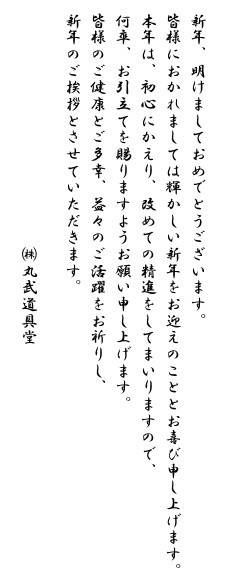 新年、明けましておめでとうございます。
皆様におかれましては輝かしい新年をお迎えのこととお喜び申し上げます。
本年は、初心にかえり、改めての精進をしてまいりますので、
何卒、お引立てを賜りますようお願い申し上げます。
皆様のご健康とご多幸、益々のご活躍をお祈りし、
新年のご挨拶とさせていただきます。
㈱丸武道具堂